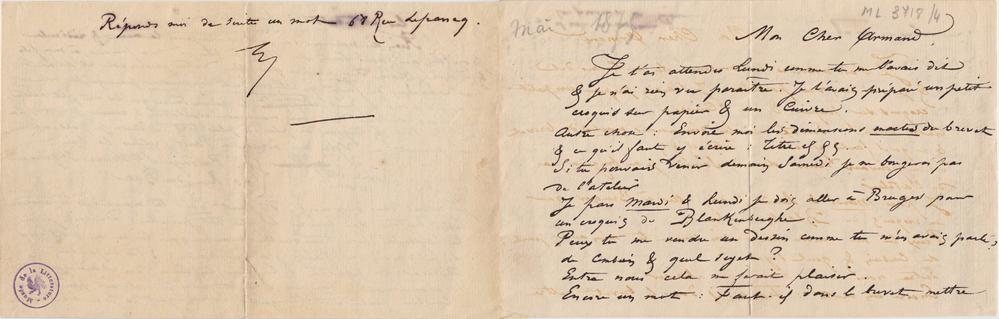 Réponds moi de suite un mot 61 Rue
Musée de la Littérature
Mai 18
ML 3718/4
Mon Cher Armand,
Je t'ai attendu Lundi comme tu me l'avais dit
& je n'ai rien vu paraître. Je t'avais préparé un petit
croquis sur papier & un Cuivre.
Autre chose : Envoie moi les dimensions exactes du brevet
& ce qu'il faut y écrire : titre
Si tu pouvais venir demain Samedi je ne bougerai pas
de l'atelier
Je pars Mardi & Lundi je dois aller à Bruges pour
un croquis de Blankenberghe.
Peux tu me vendre un dessin comme tu m'en avais parlé,
de Combien & quel sujet ?
Entre nous cela me ferait plaisir.
Encore un mot : Faut-il dans le brevet mettre